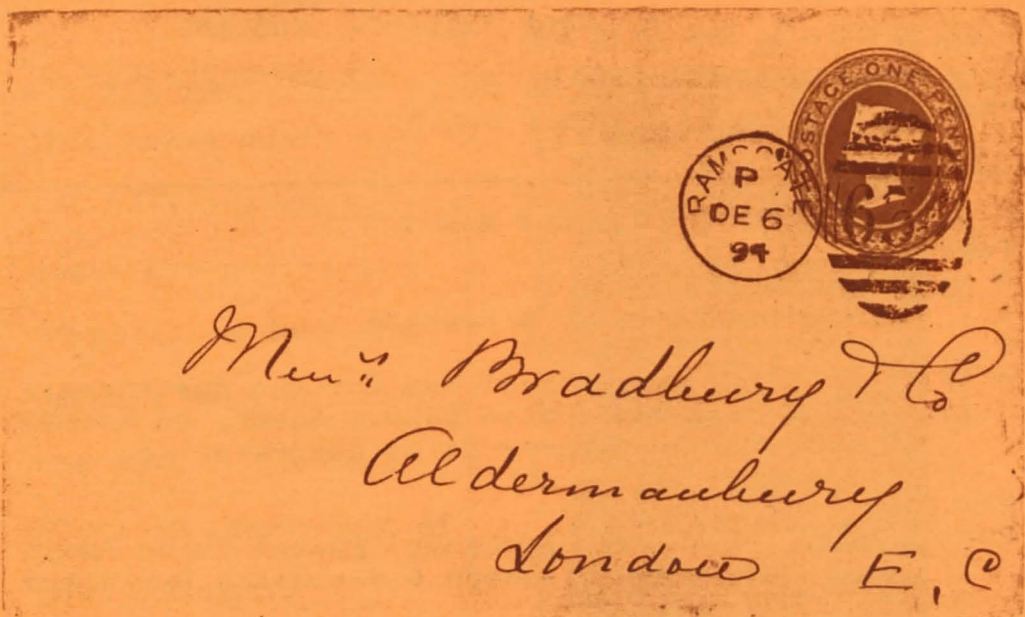 POSTAGE ONE PENNY
RAMSGATE
P
DE 6
94
Messrs Bradbury & Co
Aldermanbury
London E.C